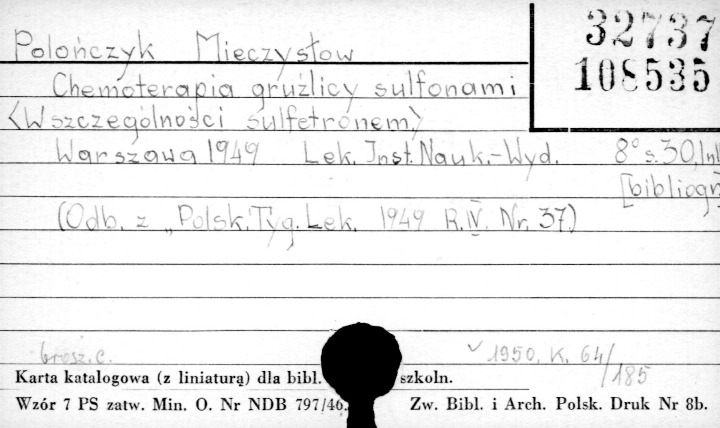 32737
108535
Polończyk Mieczysłow
Chemoterapia gruźlicy sulfonami
<Wszczególności sulfetronem>
Warszawa 1949 Lek. Inst. Nauk.-Wyd. 8° s. 30, 1 nl
[bibliogr
(Odb. z „Polsk. Tyg. Lek. 1949 R. IV. Nr. 37.)
brosz. c. 1950. K. 64/185
Karta katalogowa (z liniaturą) dla bibl. szkoln.
Wzór 7 PS zatw. Min. O. Nr NDB 797/46. Zw. Bibl. i Arch. Polsk. Druk Nr 8b.